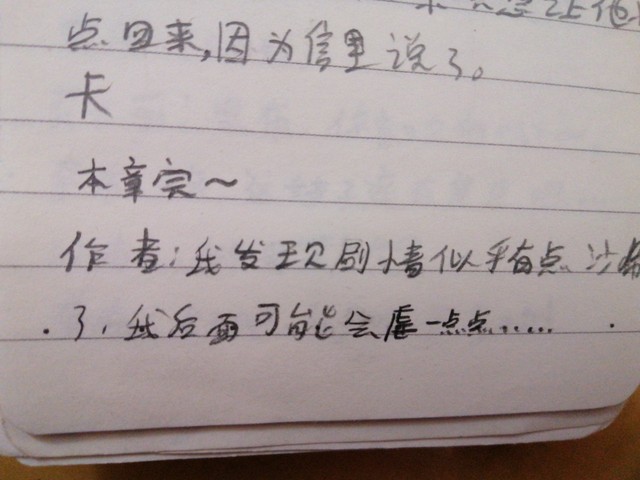 点回来,因为信里说了。
卡
本章完~
作者:我发现剧情似乎有点沙
了,我后面可能会虐一点点......